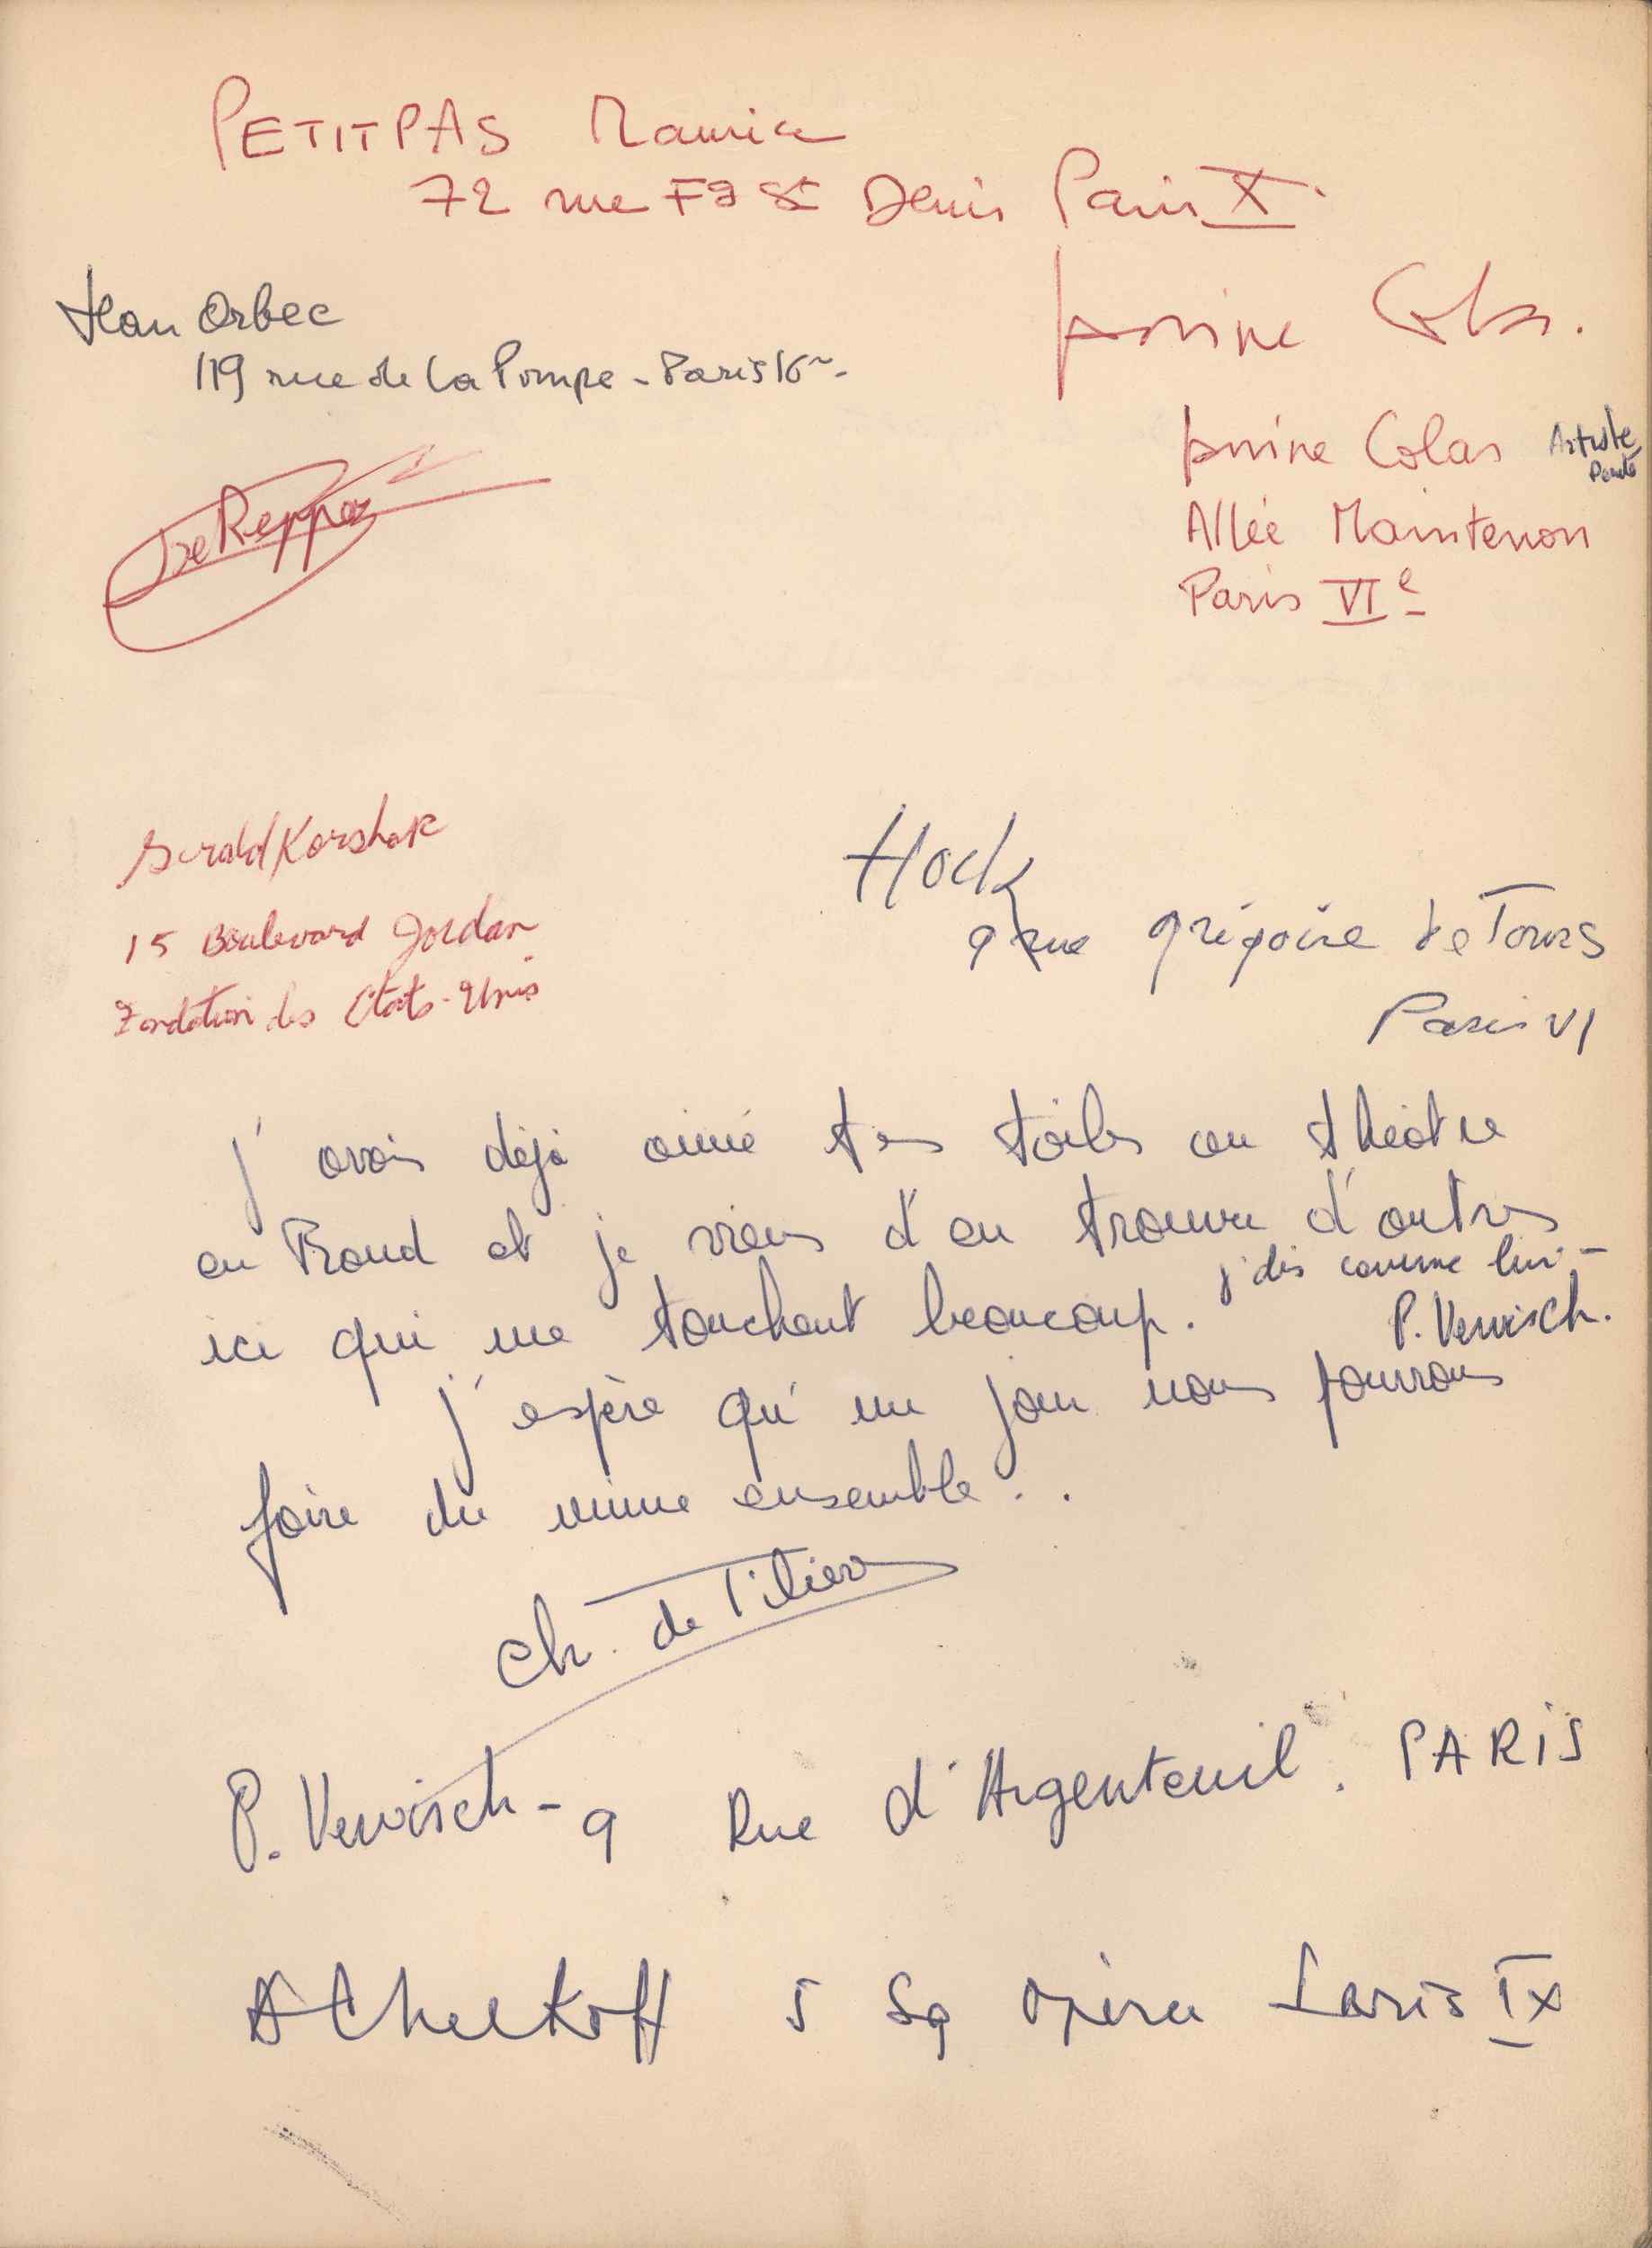 PETITPAS Maurice
72 rue Fg St Denis Paris X
Jean Orbec
119 rue de la Pompe - Paris 16
Janine Colas.
Janine Colas Artiste
Allée Maintenon
Paris VIe
Gerald Korshak
15 Boulevard Jordan
Fondation des Etats-Unis
Hock
9 rue grégoire de Tours
Paris VI
j'avais déjà aimé tes toiles au théâtre
en Rond et je viens d'en trouver d'autres
j' dis comme lui -
ici qui me touchent beaucoup.
P. Verwisch.
j'espère qu'un jour nous pourrons
faire du mime ensemble..
Ch. de Tilière
P. Verwisch - 9 Rue d'Argenteuil. PARIS
5 Sq Opéra Paris IX